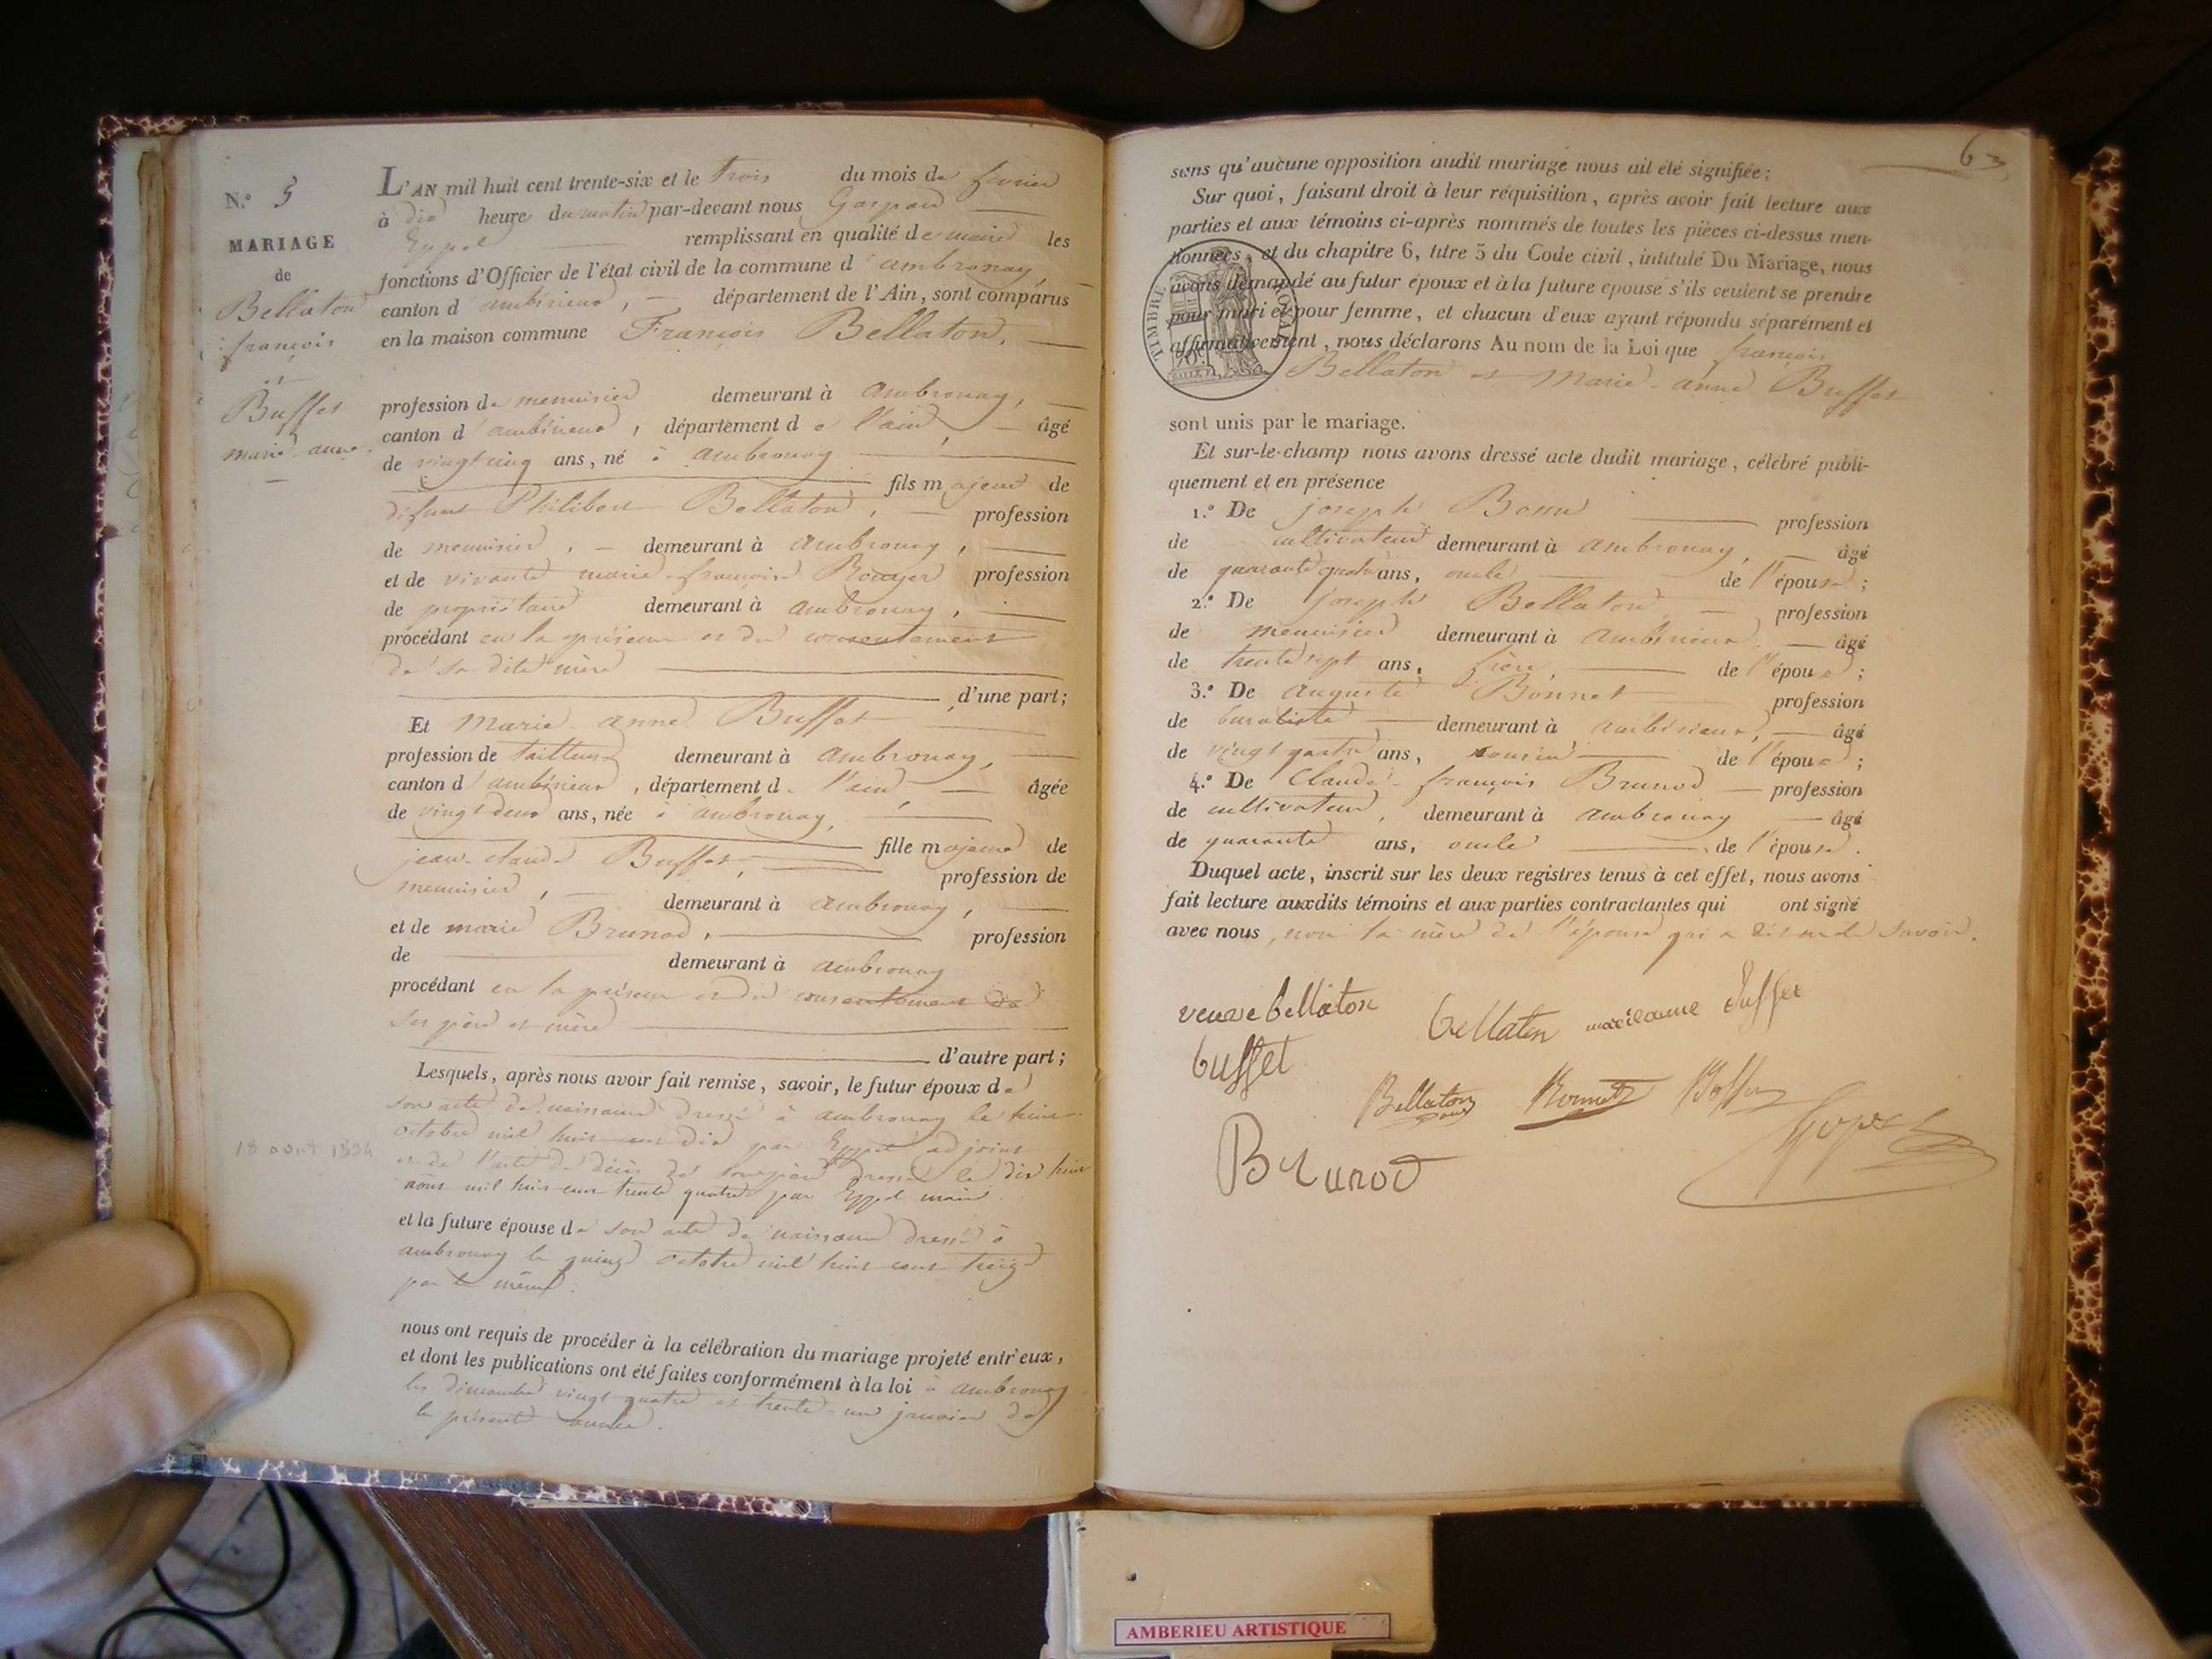 N.º 5
MARIAGE
de
Bellaton
françois
et
Buffet
marie anne
18 août 1834
L'AN mil huit cent trente-six et le trois du mois de fevrier
à dix heure du matin par-devant nous Gaspard
Eyppel remplissant en qualité de maire les
fonctions d'Officier de l'état civil de la commune d'ambronay,
canton d'ambérieux, département de l'Ain, sont comparus
en la maison commune François Bellaton,
profession de menuisier demeurant à ambronay,
canton d'ambérieux, département de l'ain, âgé
de vingt cinq ans, né à ambronay
fils majeur de
défunt Philibert Bellaton, profession
de menuisier, demeurant à ambronay,
et de vivante marie françoise Rouyer profession
de propriétaire demeurant à ambronay,
procédant en la présence et du consentement
de sa dite mère
d'une part;
Et Marie-anne Buffet
profession de tailleuse demeurant à ambronay,
canton d'ambérieux, département de l'ain, âgée
de vingt deux ans, née à ambronay,
fille majeure de
jean-claude Buffet, profession de
menuisier, demeurant à ambronay,
et de marie Brunod, profession
de demeurant à ambronay
procédant en la présence et du consentement de
ses père et mère
d'autre part;
Lesquels, après nous avoir fait remise, savoir, le futur époux de
son acte de naissance dressé à ambronay le huit
octobre mil huit cent dix par Eyppel adjoint
et de l'acte de décès de son père dressé le dix huit
août mil huit cent trente quatre par Eyppel maire
et la future épouse de son acte de naissance dressé à
ambronay le quinze octobre mil huit cent treize
par le même.
nous ont requis de procéder à la célébration du mariage projeté entr'eux,
et dont les publications ont été faites conformément à la loi à ambronay
les dimanches vingt-quatre et trente-un janvier de
la présente année.
63
sans qu'aucune opposition audit mariage nous ait été signifiée;
Sur quoi, faisant droit à leur réquisition, après avoir fait lecture aux
parties et aux témoins ci-après nommés de toutes les pièces ci-dessus men-
tionnées, et du chapitre 6, titre 5 du Code civil, intitulé Du Mariage, nous
avons demandé au futur époux et à la future épouse s'ils veulent se prendre
pour mari et pour femme, et chacun d'eux ayant répondu séparément et
affirmativement, nous déclarons Au nom de la Loi que françois
Bellaton et Marie-anne Buffet
TIMBRE ROYAL
sont unis par le mariage.
Et sur-le-champ nous avons dressé acte dudit mariage, célébré publi-
quement et en présence
1.º De joseph profession
de cultivateur demeurant à ambronay, âgé
de quarante quatre ans, oncle de l'épouse;
2.º De joseph Bellaton profession
de menuisier demeurant à ambérieux, âgé
de trente sept ans, frère de l'époux;
3.º De auguste Bonnet profession
de buraliste demeurant à ambérieux, âgé
de vingt quatre ans, cousin de l'époux;
4.º De Claude-françois Brunod profession
de cultivateur, demeurant à ambronay âgé
de quarante ans, oncle de l'épouse.
Duquel acte, inscrit sur les deux registres tenus à cet effet, nous avons
fait lecture auxdits témoins et aux parties contractantes qui ont signé
avec nous, non la mère de l'épouse qui a dit ne le savoir.
veuve bellaton bellaton marie anne buffet
buffet
Bellaton Bonnet
Brunod
AMBERIEU ARTISTIQUE